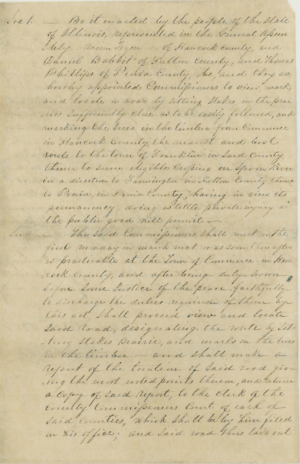 Sec 1. — Be it enacted by the people of the State
of Illinois, represented in the General Assem
bly of Hancock county, and
Daniel Babbit of Fulton County, and Thomas
Phillips of Peoria County, be, and they are
hereby appointed Commissioners to view, mark,
and locate a road by setting stakes in the prai
ries sufficiently close as to be easily followed, and
marking the trees in the timber from Commerce
in Hancock County the nearest and best
route to the town of Franklin in said County
thence to
in a direction to Farmington in Fulton County thence
to Peoria, in Peoria County, having in view its
permanency, doing as little private injury as
the public good will permit. —
Sec — The said Commissioners shall meet on the
first monday in march next or as soon there after
as practicable at the Town of Commerce in Han
cock county, and after being duly sworn
before some Justice of the peace faithfully
to discharge the duties required of them by
this act shall proceed view and locate
said Road, designating the route by set
ting stakes Prairie, and marks on the trees
in the timber — and shall make a
report of the location of said road giv
ing the most noted points thereon, and return
a copy of said report, to the clerk of the
county Commissioners Court of each of
said counties, which shall be by him filed
in his office; and said road thus laid out